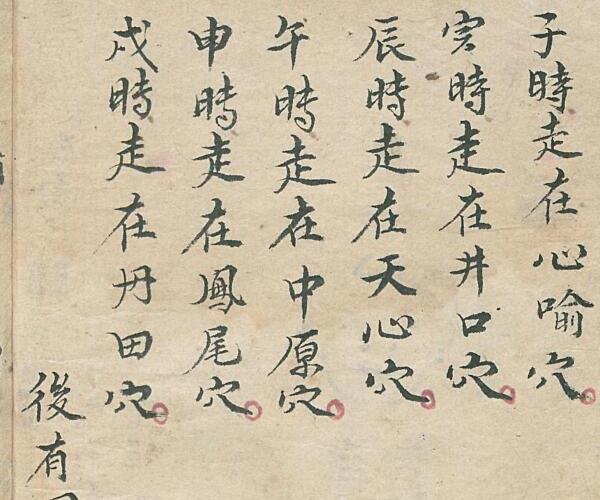 子時走在心喻穴
寅時走在井口穴
辰時走在天心穴
午時走在中原穴
申時走在鳳尾穴
戌時走在丹田穴
後有